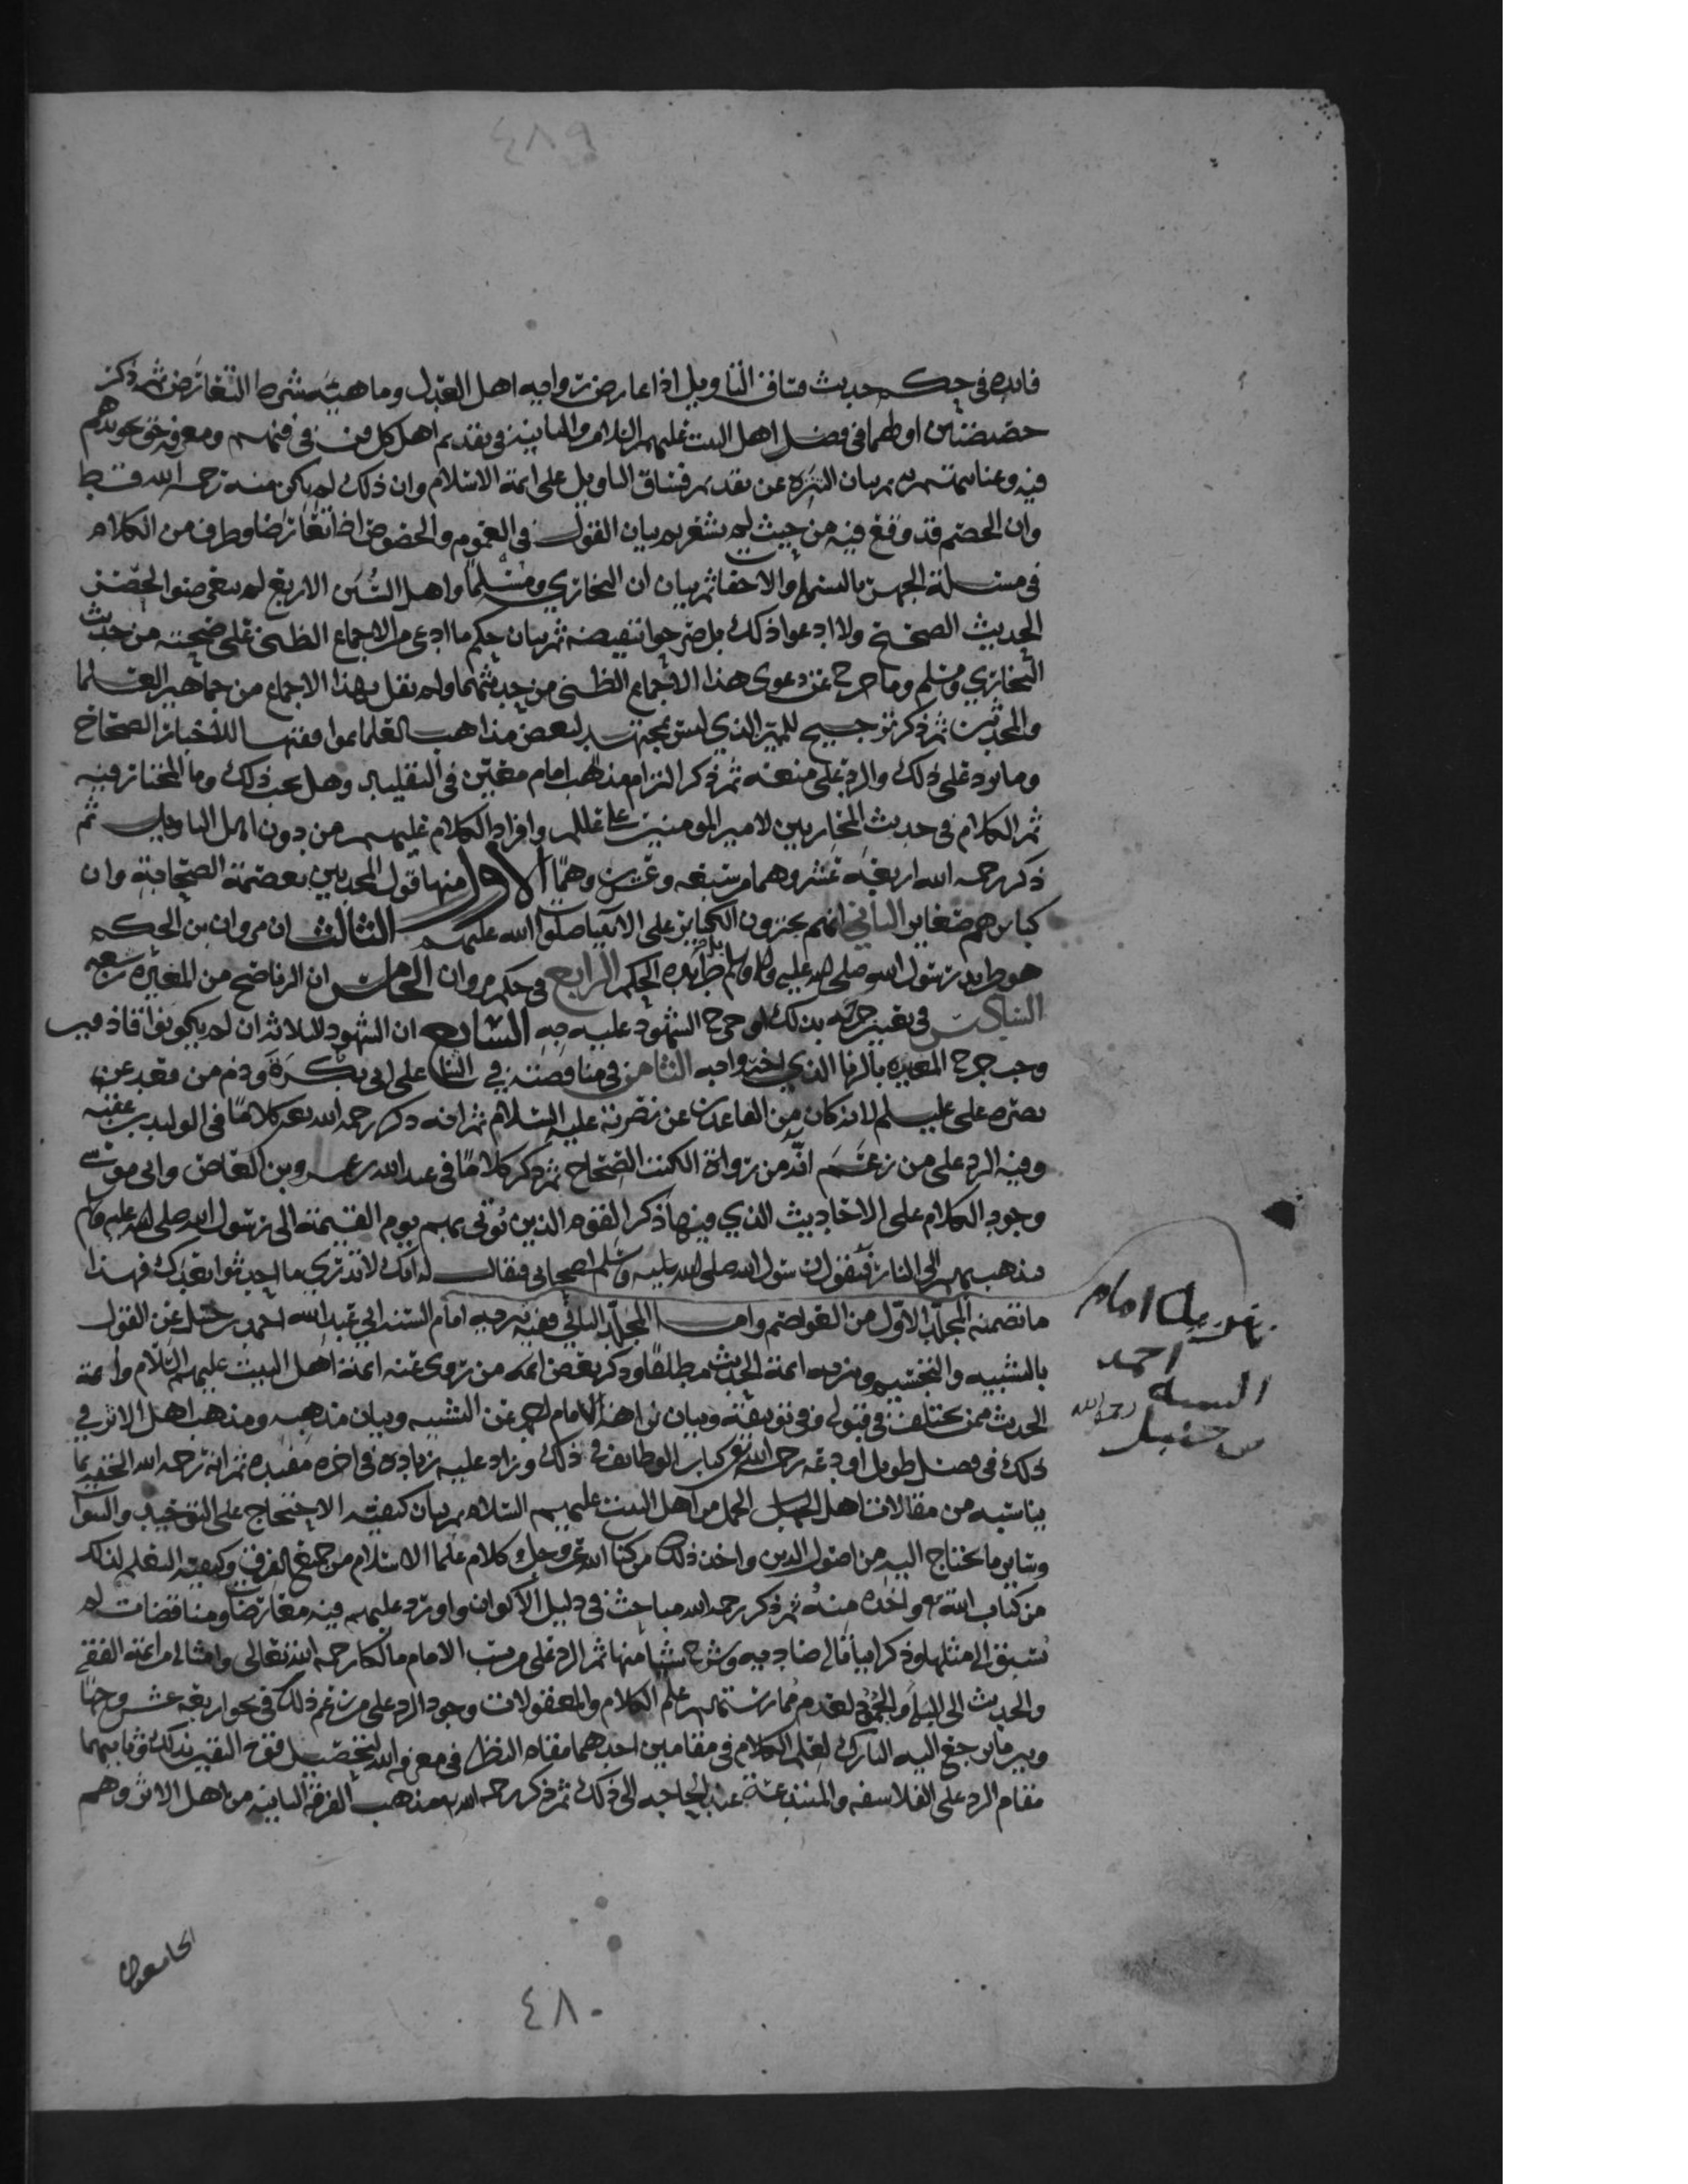 ٤٨٩
فايده في حكم حديث فساق التاويل اذا عارض رواية اهل العدل وما هية شرط التعارض ثم ذكر
في فضل اهل البيت عليهم السلام في تقديم اهل كل فن في فنهم ومعرفة حق
فيه ثم بيان عن تقديم فساق التاويل على ايمة الاسلام وان ذلك لم يكن منه رحمه الله قط
وان الخصم قد وقع فيه من حيث لم يشعر ثم بيان القول في العموم والخصوص اذا تعارضا وطرف من الكلام
في مسئلة الجهر بالبسملة والاخفا ثم بيان ان البخاري ومسلما واهل السنن الاربع لم
الحديث الصحيح ولا ادعوا ذلك بل صرحوا بنقيضه ثم بيان حكم ما ادعي من الاجماع الظني على صحته من حديث
البخاري ومسلم وما خرج عن دعوى هذا الاجماع الظني من حديثهما ومن نقل هذا الاجماع من جماهير العلما
والمحدثين ثم ذكر ترجيح المميز الذي ليس بمجتهد لبعض مذاهب العلما بموافقتها للاخبار الصحاح
وما يرد على ذلك والرد على منعه ثم ذكر التزام مذهب امام معين في التقليد وهل يجب ذلك وما المختار فيه
ثم الكلام في حديث المحاربين لامير المومنين علي عليلم وافراد الكلام عليهم من دون اهل التاويل ثم
ذكر رحمه الله اربعة عشر وهما من سبعة وعشرين وهما الاول منها قول المحدثين بعصمة الصحابة وان
كبايرهم صغاير الثاني انهم يجيزون الكباير على الانبيا صلوات الله عليهم الثالث ان مروان بن الحكم
هو طريد رسول الله صلى الله عليه واله وسلم الرابع في حكم مروان الخامس ان الرنا صح من المغيرة بن شعبه
السادس في بذلك او جرح الشهود عليه به السابع ان الشهود الثلاثة ان لم يكونوا قاذفين
وجب جرح المغيره بالزنا الذي اخبروا به الثامن في مناقضته في الثنا على ابي بكرة وذم من قعد عن
نصرة علي عليلم لانه كان من القاعدين عن نصرته عليه السلام ثم انه ذكر رحمه الله كلاما في الوليد بن عقبة
وفيه الرد على من زعم انه من رواة الكتب الصحاح ثم ذكر كلاما في عبد الله بن عمرو بن العاص وابي موسى
وجود الكلام على الاحاديث الذي فيها ذكر القوم الذين يؤتى بهم يوم القيمة الى رسول الله صلى الله عليه وسلم
فيذهب بهم الى النار فيقول رسول الله صلى الله عليه وسلم اصحابي فيقال له انك لا تدري ما احدثوا بعدك فهذا
ما تضمنه المجلد الاول من العواصم واما المجلد الثاني ففيه تنزيه امام السنة ابي عبد الله احمد بن حنبل عن القول
بالتشبيه والتجسيم وتنزيه ايمة الحديث مطلقا وذكر بعض ايمة من روى عنه ايمة اهل البيت عليهم السلام وايمة
الحديث ممن يختلف في قبوله وفي توثيقه وبيان براة هذا الامام احمد عن التشبيه وبيان مذهبه ومذهب اهل الاثر في
ذلك في فصل طويل اودعه رحمه الله كتاب الوظايف في ذلك وزاد عليه زياده في اخره مفيده ثم انه رحمه الله
يناسبه من مقالات اهل الجمل من اهل البيت عليهم السلام ثم بيان كيفية الاحتجاج على التوحيد والنبوات
وساير ما يحتاج اليه من اصول الدين واخذ ذلك من كتاب الله عز وجل وكلام علما الاسلام من جميع الفرق وكيفية التعلم لذلك
من كتاب الله واخذه منه ثم ذكر رحمه الله مباحث في دليل الاكوان واورد عليهم فيه معارضات ومناقضات لم
يسبق الى مثلها وذكر ابياتا له ضادية وشرح شيا منها ثم الرد على من نسب الامام مالكا رحمه الله تعالى وامثاله من ايمة الفقه
والحديث الى البله والجمود لعدم ممارستهم لعلم الكلام والمعقولات وجود الرد على من زعم ذلك في نحو اربعة عشر وجها
وبين ما يرجع اليه التارك لعلم الكلام في مقامين احدهما مقام النظر في معرفة الله وثانيهما
مقام الرد على الفلاسفه والمبتدعة عند الحاجه الى ذلك ثم ذكر رحمه الله مذهب الفرقة الثانية من اهل الاثر وهم
امام
احمد
بن حنبل رحمه الله
٤٨٠